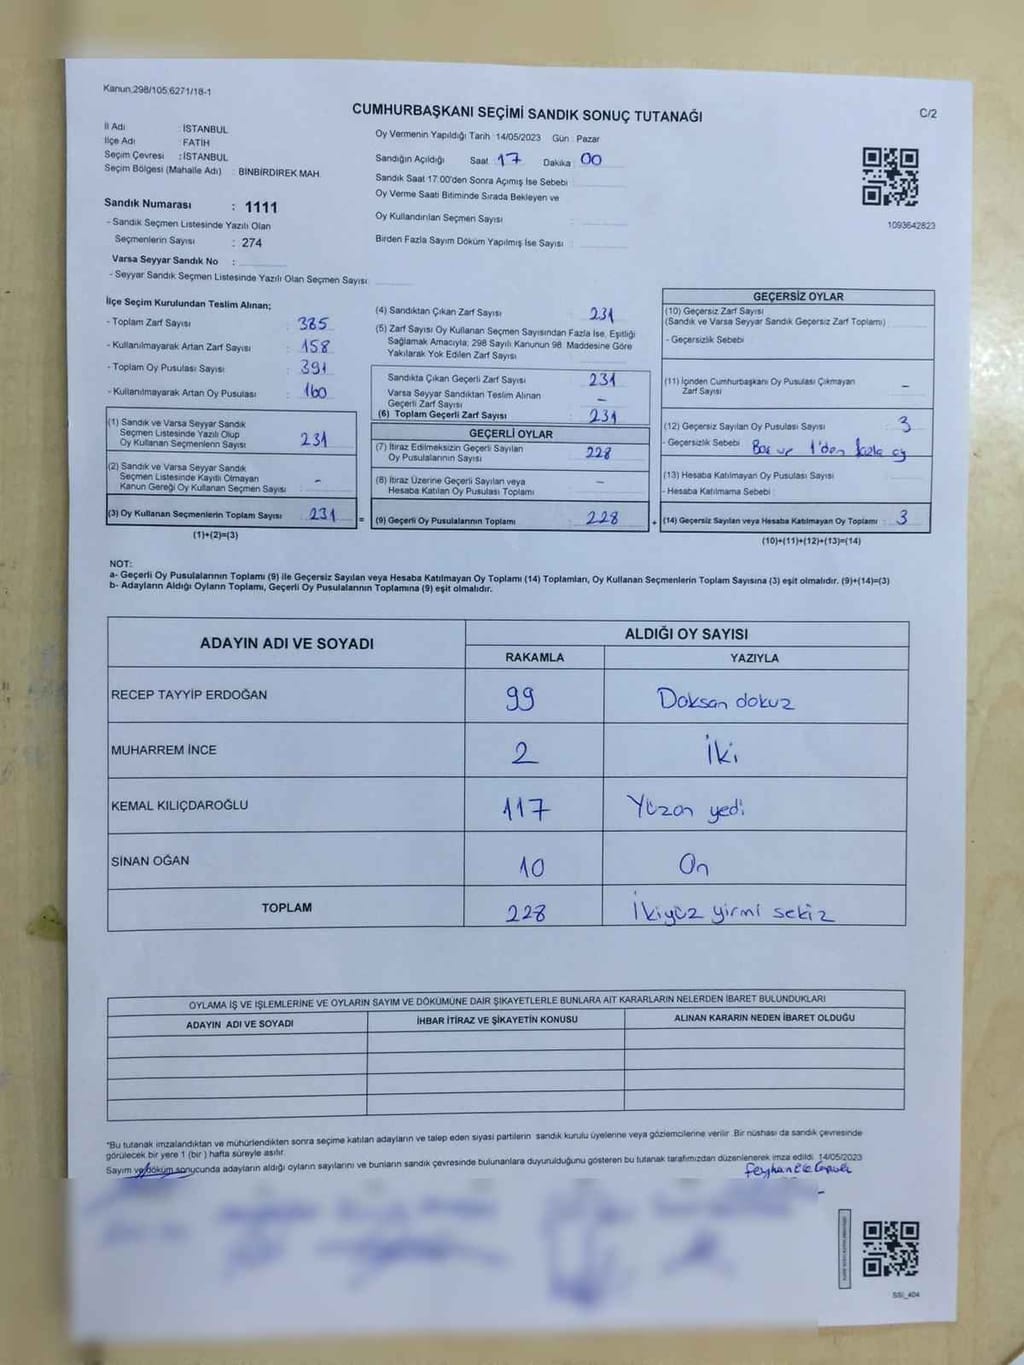 Kanun.298/105,6271/18-1
CUMHURBAŞKANI SEÇİMİ SANDIK SONUÇ TUTANAĞI
C/2
İl Adı : İSTANBUL
İlçe Adı : FATİH
Seçim Çevresi : İSTANBUL
Seçim Bölgesi (Mahalle Adı) : BİNBİRDİREK MAH.
Sandık Numarası : 1111
- Sandık Seçmen Listesinde Yazılı Olan
Seçmenlerin Sayısı : 274
Varsa Seyyar Sandık No :
- Seyyar Sandık Seçmen Listesinde Yazılı Olan Seçmen Sayısı:
Oy Vermenin Yapıldığı Tarih :14/05/2023 Gün : Pazar
Sandığın Açıldığı Saat : 17 Dakika : 00
Sandık Saat 17:00'den Sonra Açımış İse Sebebi :
Oy Verme Saati Bitiminde Sırada Bekleyen ve
Oy Kullandırılan Seçmen Sayısı :
Birden Fazla Sayım Döküm Yapılmış İse Sayısı :
1093642823
İlçe Seçim Kurulundan Teslim Alınan;
- Toplam Zarf Sayısı : 385
- Kullanılmayarak Artan Zarf Sayısı : 158
- Toplam Oy Pusulası Sayısı : 391
- Kullanılmayarak Artan Oy Pusulası : 160
(1) Sandık ve Varsa Seyyar Sandık
Seçmen Listesinde Yazılı Olup
Oy Kullanan Seçmenlerin Sayısı : 231
(2) Sandık ve Varsa Seyyar Sandık
Seçmen Listesinde Kayıtlı Olmayan
Kanun Gereği Oy Kullanan Seçmen Sayısı : -
(3) Oy Kullanan Seçmenlerin Toplam Sayısı : 231
(1)+(2)=(3)
(4) Sandıktan Çıkan Zarf Sayısı : 231
(5) Zarf Sayısı Oy Kullanan Seçmen Sayısından Fazla İse, Eşitliği
Sağlamak Amacıyla; 298 Sayılı Kanunun 98. Maddesine Göre
Yakılarak Yok Edilen Zarf Sayısı :
Sandıkta Çıkan Geçerli Zarf Sayısı : 231
Varsa Seyyar Sandıktan Teslim Alınan
Geçerli Zarf Sayısı : -
(6) Toplam Geçerli Zarf Sayısı : 231
GEÇERLİ OYLAR
(7) İtiraz Edilmeksizin Geçerli Sayılan
Oy Pusulalarının Sayısı : 228
(8) İtiraz Üzerine Geçerli Sayılan veya
Hesaba Katılan Oy Pusulası Toplamı : -
= (9) Geçerli Oy Pusulalarının Toplamı : 228 +
GEÇERSİZ OYLAR
(10) Geçersiz Zarf Sayısı
(Sandık ve Varsa Seyyar Sandık Geçersiz Zarf Toplamı) :
- Geçersizlik Sebebi :
(11) İçinden Cumhurbaşkanı Oy Pusulası Çıkmayan
Zarf Sayısı : -
(12) Geçersiz Sayılan Oy Pusulası Sayısı : 3
- Geçersizlik Sebebi : Boş ve 1'den fazla oy
(13) Hesaba Katılmayan Oy Pusulası Sayısı :
- Hesaba Katılmama Sebebi :
(14) Geçersiz Sayılan veya Hesaba Katılmayan Oy Toplamı : 3
(10)+(11)+(12)+(13)=(14)
NOT:
a- Geçerli Oy Pusulalarının Toplamı (9) ile Geçersiz Sayılan veya Hesaba Katılmayan Oy Toplamı (14) Toplamları, Oy Kullanan Seçmenlerin Toplam Sayısına (3) eşit olmalıdır. (9)+(14)=(3)
b- Adayların Aldığı Oyların Toplamı, Geçerli Oy Pusulalarının Toplamına (9) eşit olmalıdır.
ADAYIN ADI VE SOYADI ALDIĞI OY SAYISI
RAKAMLA YAZIYLA
RECEP TAYYİP ERDOĞAN 99 Doksan dokuz
MUHARREM İNCE 2 İki
KEMAL KILIÇDAROĞLU 117 Yüzon yedi
SİNAN OĞAN 10 On
TOPLAM 228 İkiyüz yirmi sekiz
OYLAMA İŞ VE İŞLEMLERİNE VE OYLARIN SAYIM VE DÖKÜMÜNE DAİR ŞİKAYETLERLE BUNLARA AİT KARARLARIN NELERDEN İBARET BULUNDUKLARI
ADAYIN ADI VE SOYADI İHBAR İTİRAZ VE ŞİKAYETİN KONUSU ALINAN KARARIN NEDEN İBARET OLDUĞU
*Bu tutanak imzalandıktan ve mühürlendikten sonra seçime katılan adayların ve talep eden siyasi partilerin sandık kurulu üyelerine veya gözlemcilerine verilir. Bir nüshası da sandık çevresinde
görülecek bir yere 1 (bir) hafta süreyle asılır.
Sayım ve döküm sonucunda adayların aldığı oyların sayılarını ve bunların sandık çevresinde bulunanlara duyurulduğunu gösteren bu tutanak tarafımızdan düzenlenerek imza edildi. 14/05/2023
SSI_404